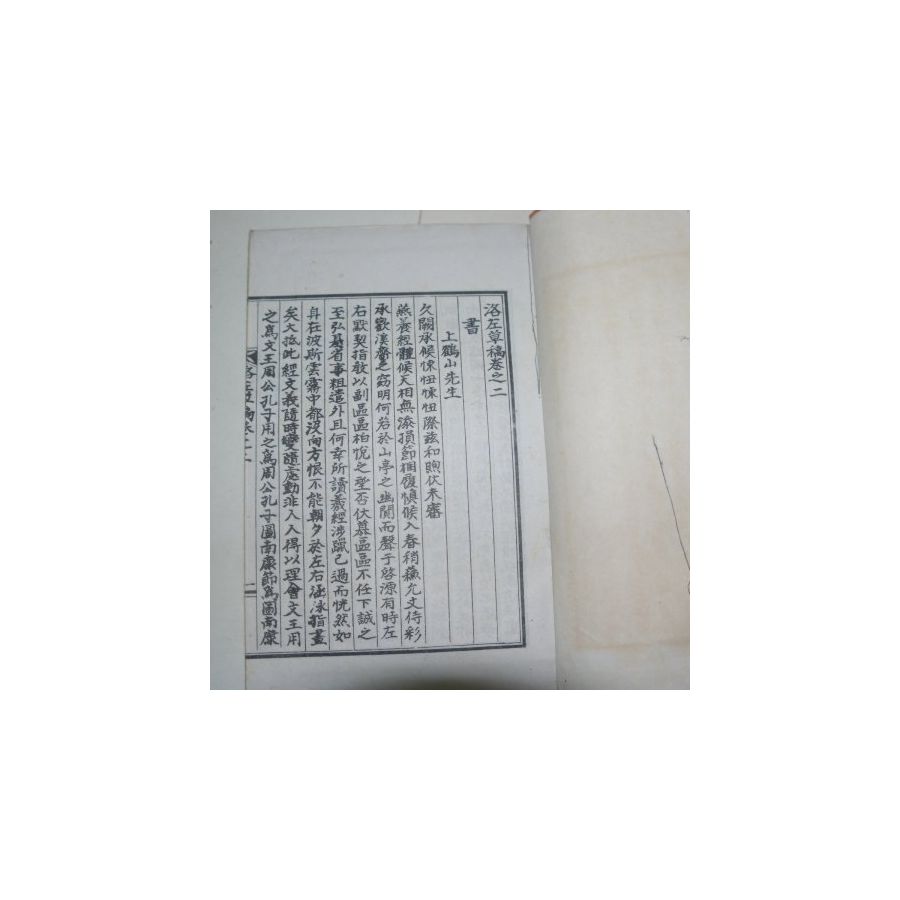 洛左草稿卷之二
書
上鶴山先生
久闕承候悚忸悚忸際玆和煦伏未審
燕養經體候天相無添損節梱履愼候入春稍蘇允文侍彩
承歡溪齋之窈明何若於山亭之幽閒而聲子啓源有時左
右默契指教以副區區柏悅之望否伏慕區區不任下誠之
至弘基省事粗遣外且何幸所讀羲經涉躐已過而恍然如
身在波斯雲霧中都沒向方恨不能朝夕於左右涵泳指畫
矣大抵此經文義隨時變隨處動非入人得以理會文王用
之爲文王周公孔子用之爲周公孔子圖南康節爲圖南康